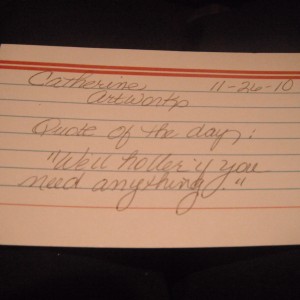 Catherine, 11-26-10
Artworks
Quote of the day:
"Well holler if you
need anything"